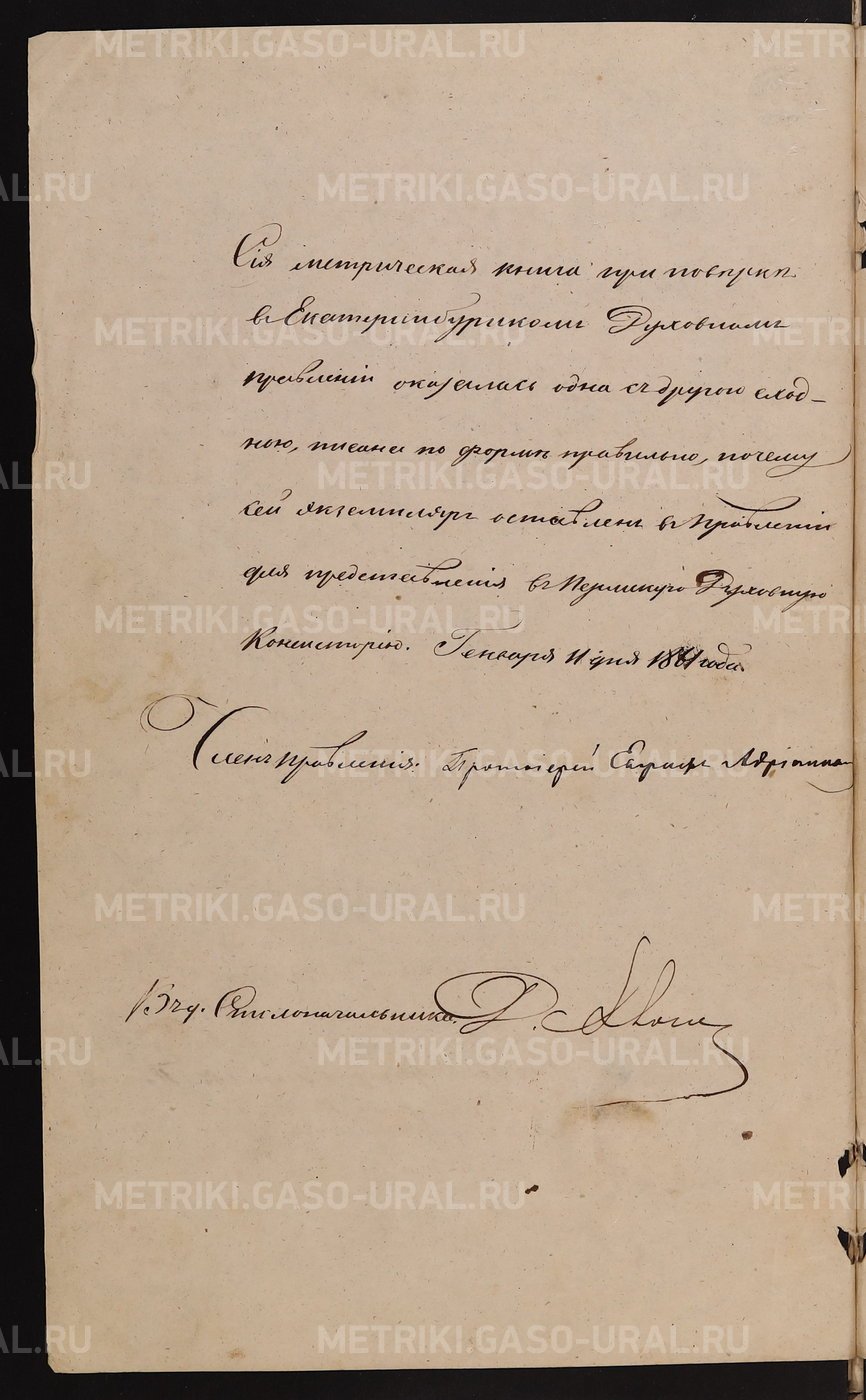 Сія метрическая книга при повѣркѣ
въ Екатеринбургскомъ Духовномъ
правленіи оказалась одна съ другою сход-
ною, писана по формѣ правильно, почему
сей экземпляръ оставленъ въ Правленіи
для представленія въ Пермскую Духовную
Консисторію. Генваря 11 дня 1861 года.
Членъ Правленія: Протоіерей
Столоначальника
METRIKI.GASO-URAL.RU